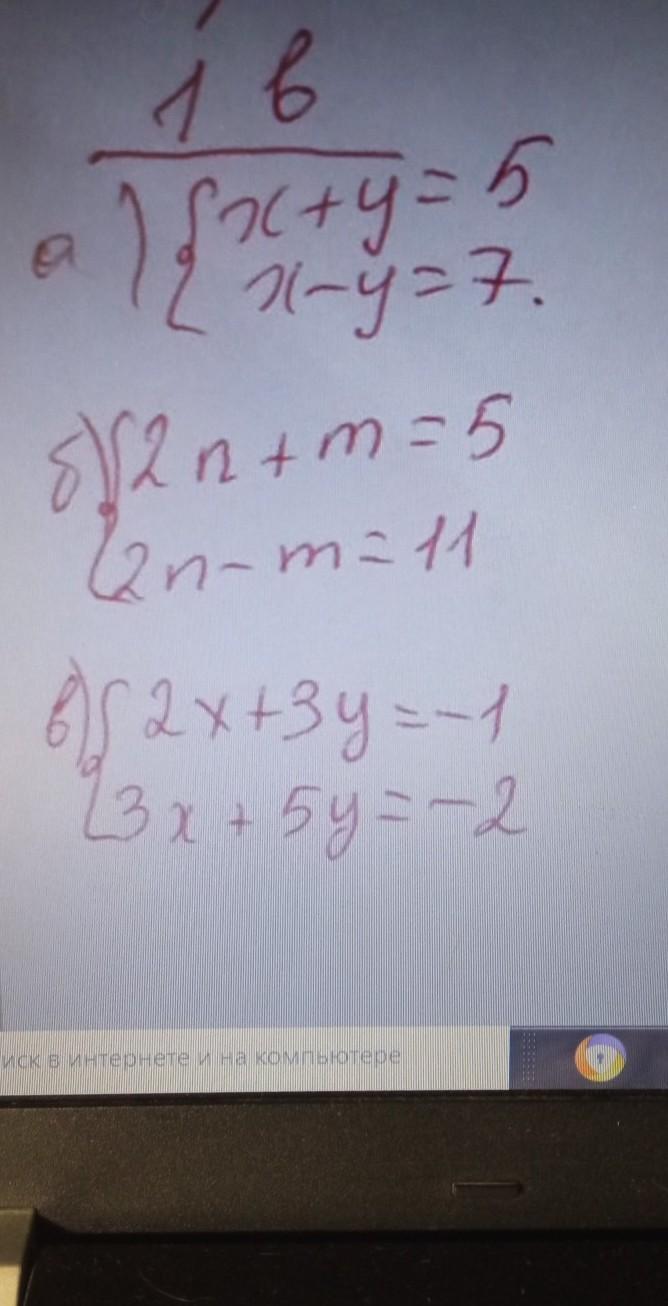 1 в
а) { x + y = 5
x - y = 7.
б) { 2n + m = 5
2n - m = 11
в) { 2x + 3y = -1
3x + 5y = -2
иск в интернете и на компьютере